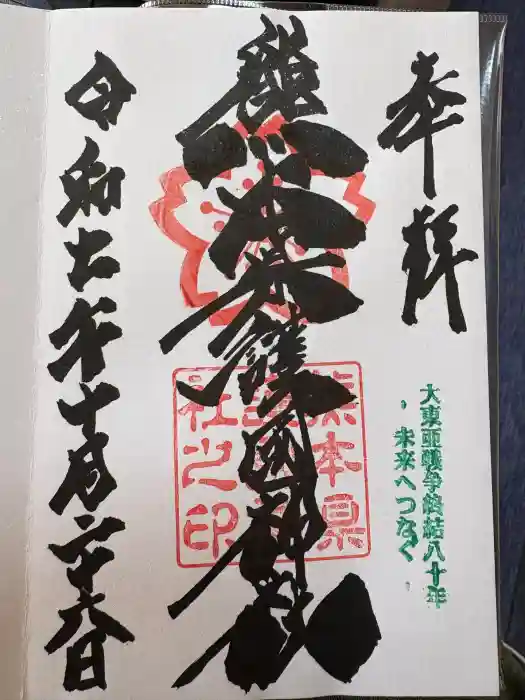 奉拝
大東亜戦争終結八十年
，未来へつなぐ，
熊本県護国神社
熊本県
護国神
社之印
令和七年十月二十六日